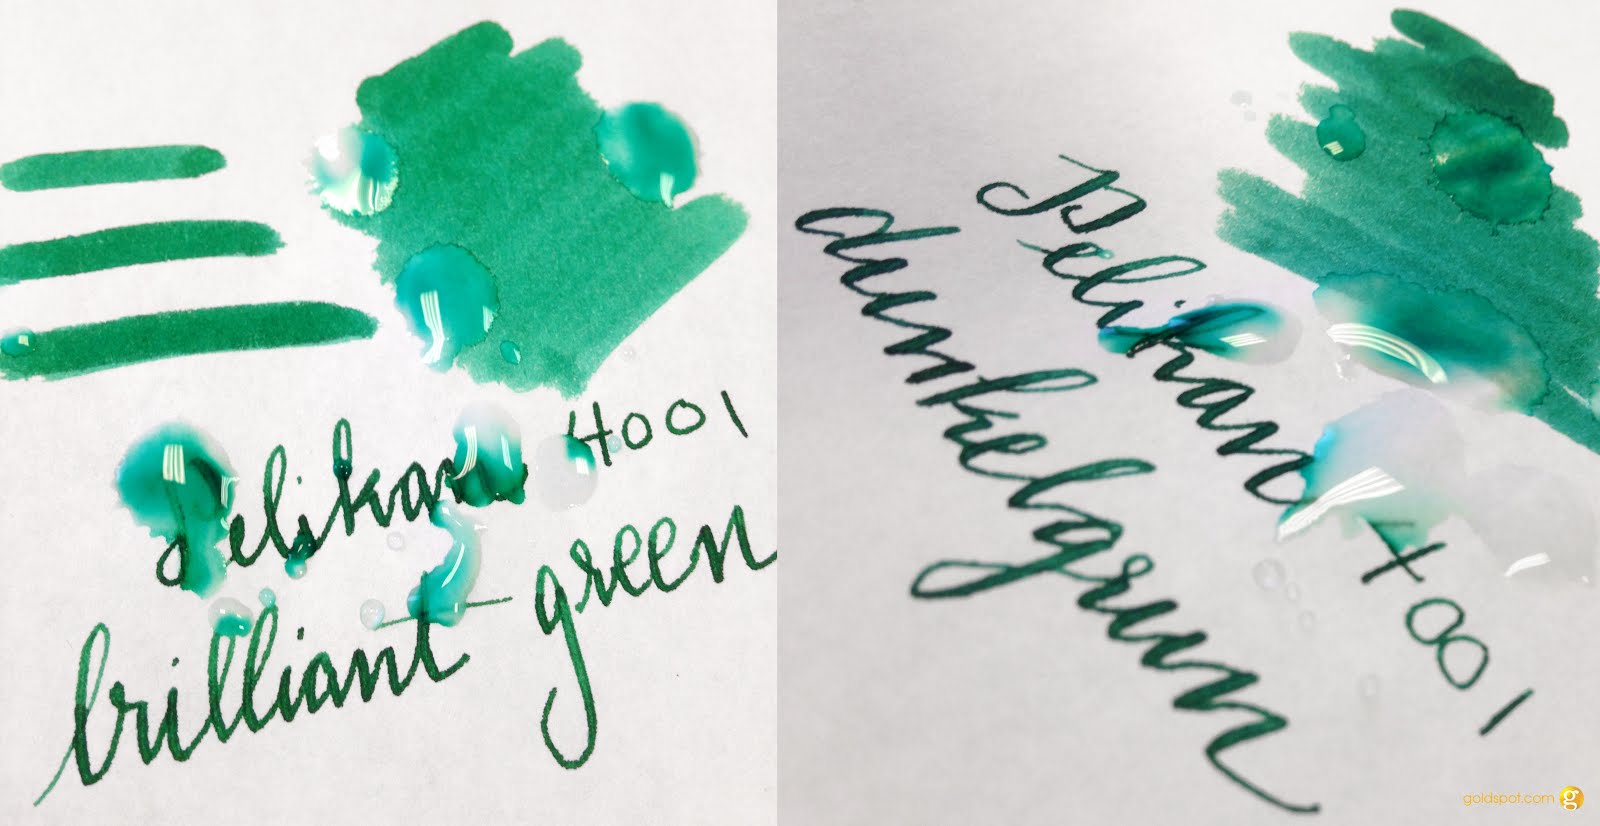 Pelikan 4001
brilliant green
Pelikan 4001
dunkelgrun
goldspot.com g